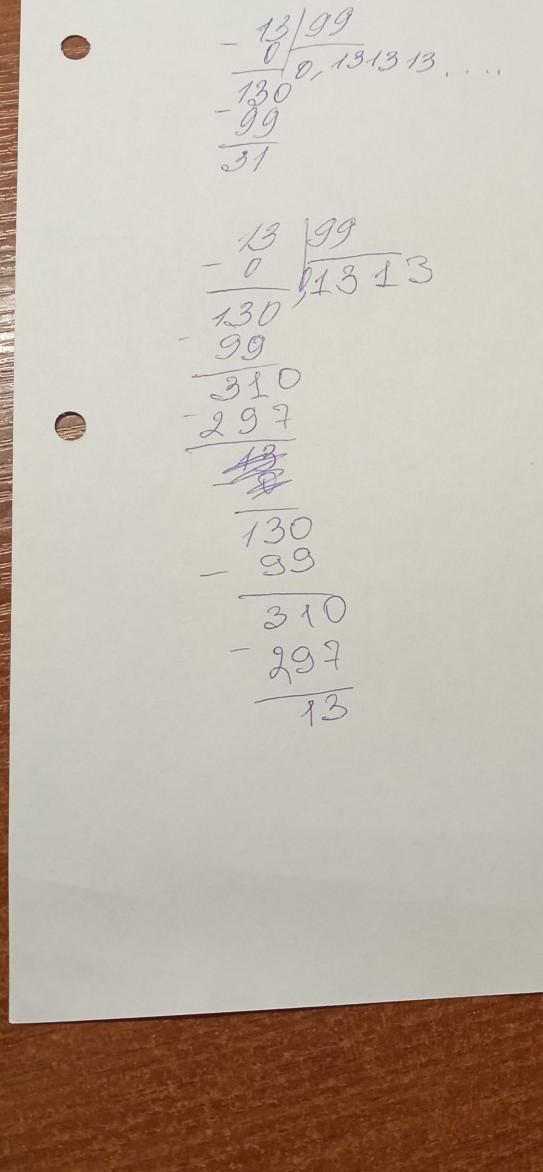 - 13 | 99
0 0,131313.....
130
- 99
31
- 13 | 99
0 0,1313
130
- 99
310
- 297
130
- 99
310
- 297
13